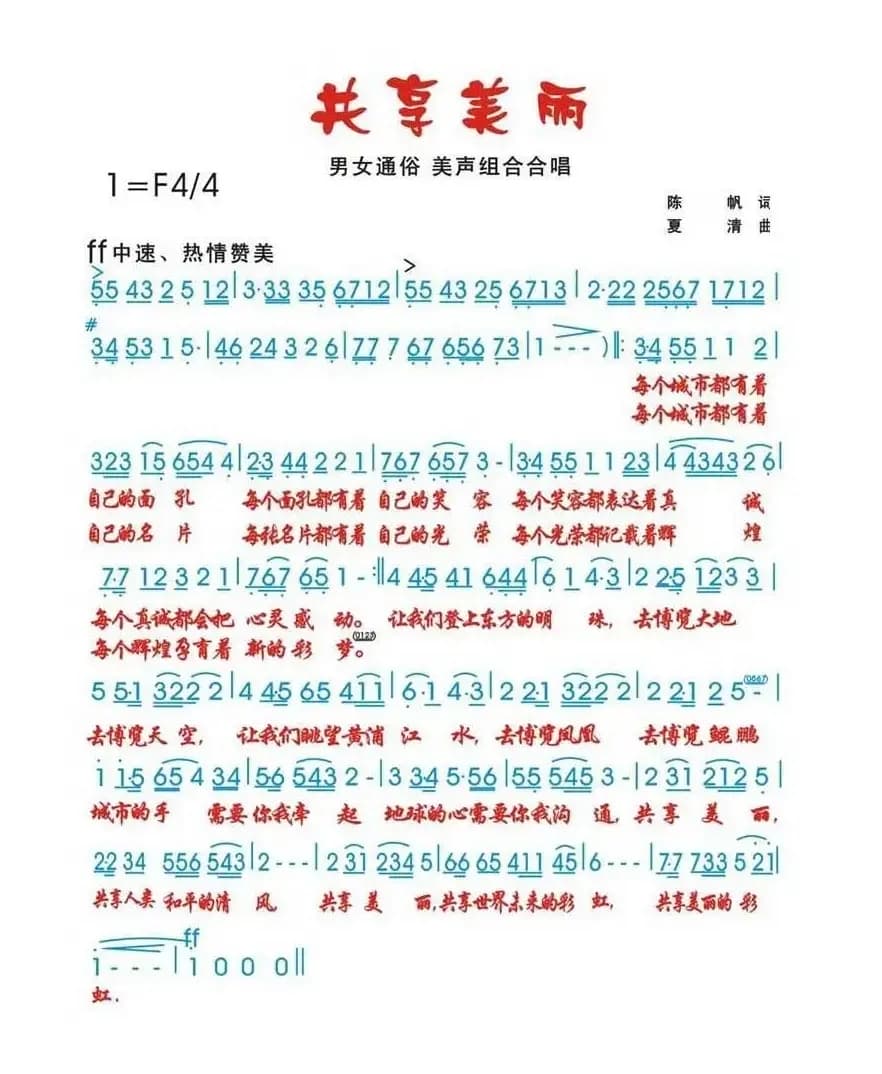 共享美丽
男女通俗 美声组合合唱
1=F4/4
陈 帆 词
夏 清 曲
ff中速、热情赞美
55 43 2 5 12|3·33 35 6712|55 43 25 6713|2·22 2567 1712|
#
34 53 1 5·|46 24 3 2 6|77 7 67 656 73|1 - - - )‖: 3·4 55 1 1 2|
每个城市都有着
每个城市都有着
323 15 654 4|2·3 44 2 2 1|767 657 3 -|3·4 55 1 1 23|4 4343 2 6|
自己的面 孔 每个面孔都有着 自己的笑 容 每个笑容都表达着真 诚
自己的名 片 每张名片都有着 自己的光 荣 每个光荣都记载着辉 煌
7·7 12 3 2 1|767 65 1 - :‖4 45 41 644|6 1 4·3|2 2·5 123 3|
每个真诚都会把 心灵感 动。 让我们登上东方的明 珠, 去博览大地
(0123)
每个辉煌孕育着 新的彩 梦。
5 5·1 322 2|4 4·5 65 411|6·1 4·3|2 2·1 322 2|2 2·1 2 5 -|
(0667)
去博览天空, 让我们眺望黄浦 江 水, 去博览凤凰 去博览鲲鹏
1 1·5 65 4 34|56 543 2 -|3 3·4 5·56|55 545 3 -|2 31 212 5|
城市的手 需要你我牵 起 地球的心需要你我沟 通, 共享 美 丽,
22 34 556 543|2 - - -|2 31 234 5|66 65 411 45|6 - - -|7·7 733 5 21|
共享人类 和平的清 风 共享 美 丽,共享世界未来的彩 虹, 共享美丽的 彩
ff
1 - - -|1 0 0 0‖
虹.